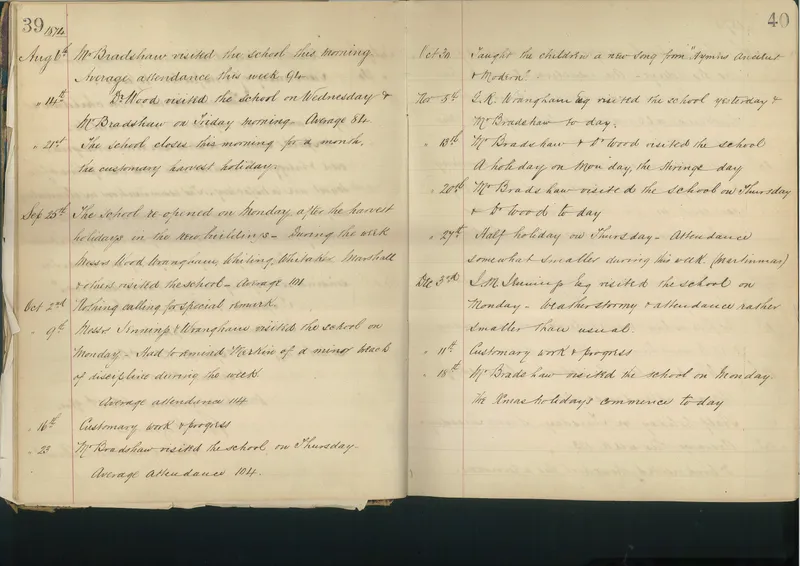 39 1874
Aug 7th Mr Bradshaw visited the school this morning.
Average attendance this week 94
" 14th Dr Wood visited the school on Wednesday &
Mr Bradshaw on Friday morning - Average 84
" 21st The school closes this morning for a month,
the customary harvest holiday.
Sep 25th The School re opened on Monday, after the harvest
holidays in the new buildings - During the week
Messrs Wood, Wrangham, Whiting, Whitaker, Marshall
& others visited the school - Average 101
Oct 2nd Nothing calling for special remark
" 9th Messrs & Wrangham visited the school on
Monday - Had to remind of a minor breach
of discipline during the week
Average attendance 114
" 16th Customary work & progress
" 23 Mr Bradshaw visited the school on Thursday -
Average attendance 104.
40
Oct 30 Taught the children a new song from "Hymns Ancient
& Modern"
Nov 5th G.R. Wrangham Esq visited the school yesterday &
Mr Bradshaw to day.
" 13th Mr Bradshaw & Dr Wood visited the school
A holiday on Monday, the day
" 20th Mr Bradshaw visited the school on Thursday
& Dr Wood to day
" 27th Half holiday on Thursday - Attendance
somewhat smaller during this week (Martinmas)
Dec 3rd Esq visited the school on
Monday - Weather stormy & attendance rather
smaller than usual.
" 11th Customary work & progress
" 18th Mr Bradshaw visited the school on Monday.
The Xmas holidays commence to day